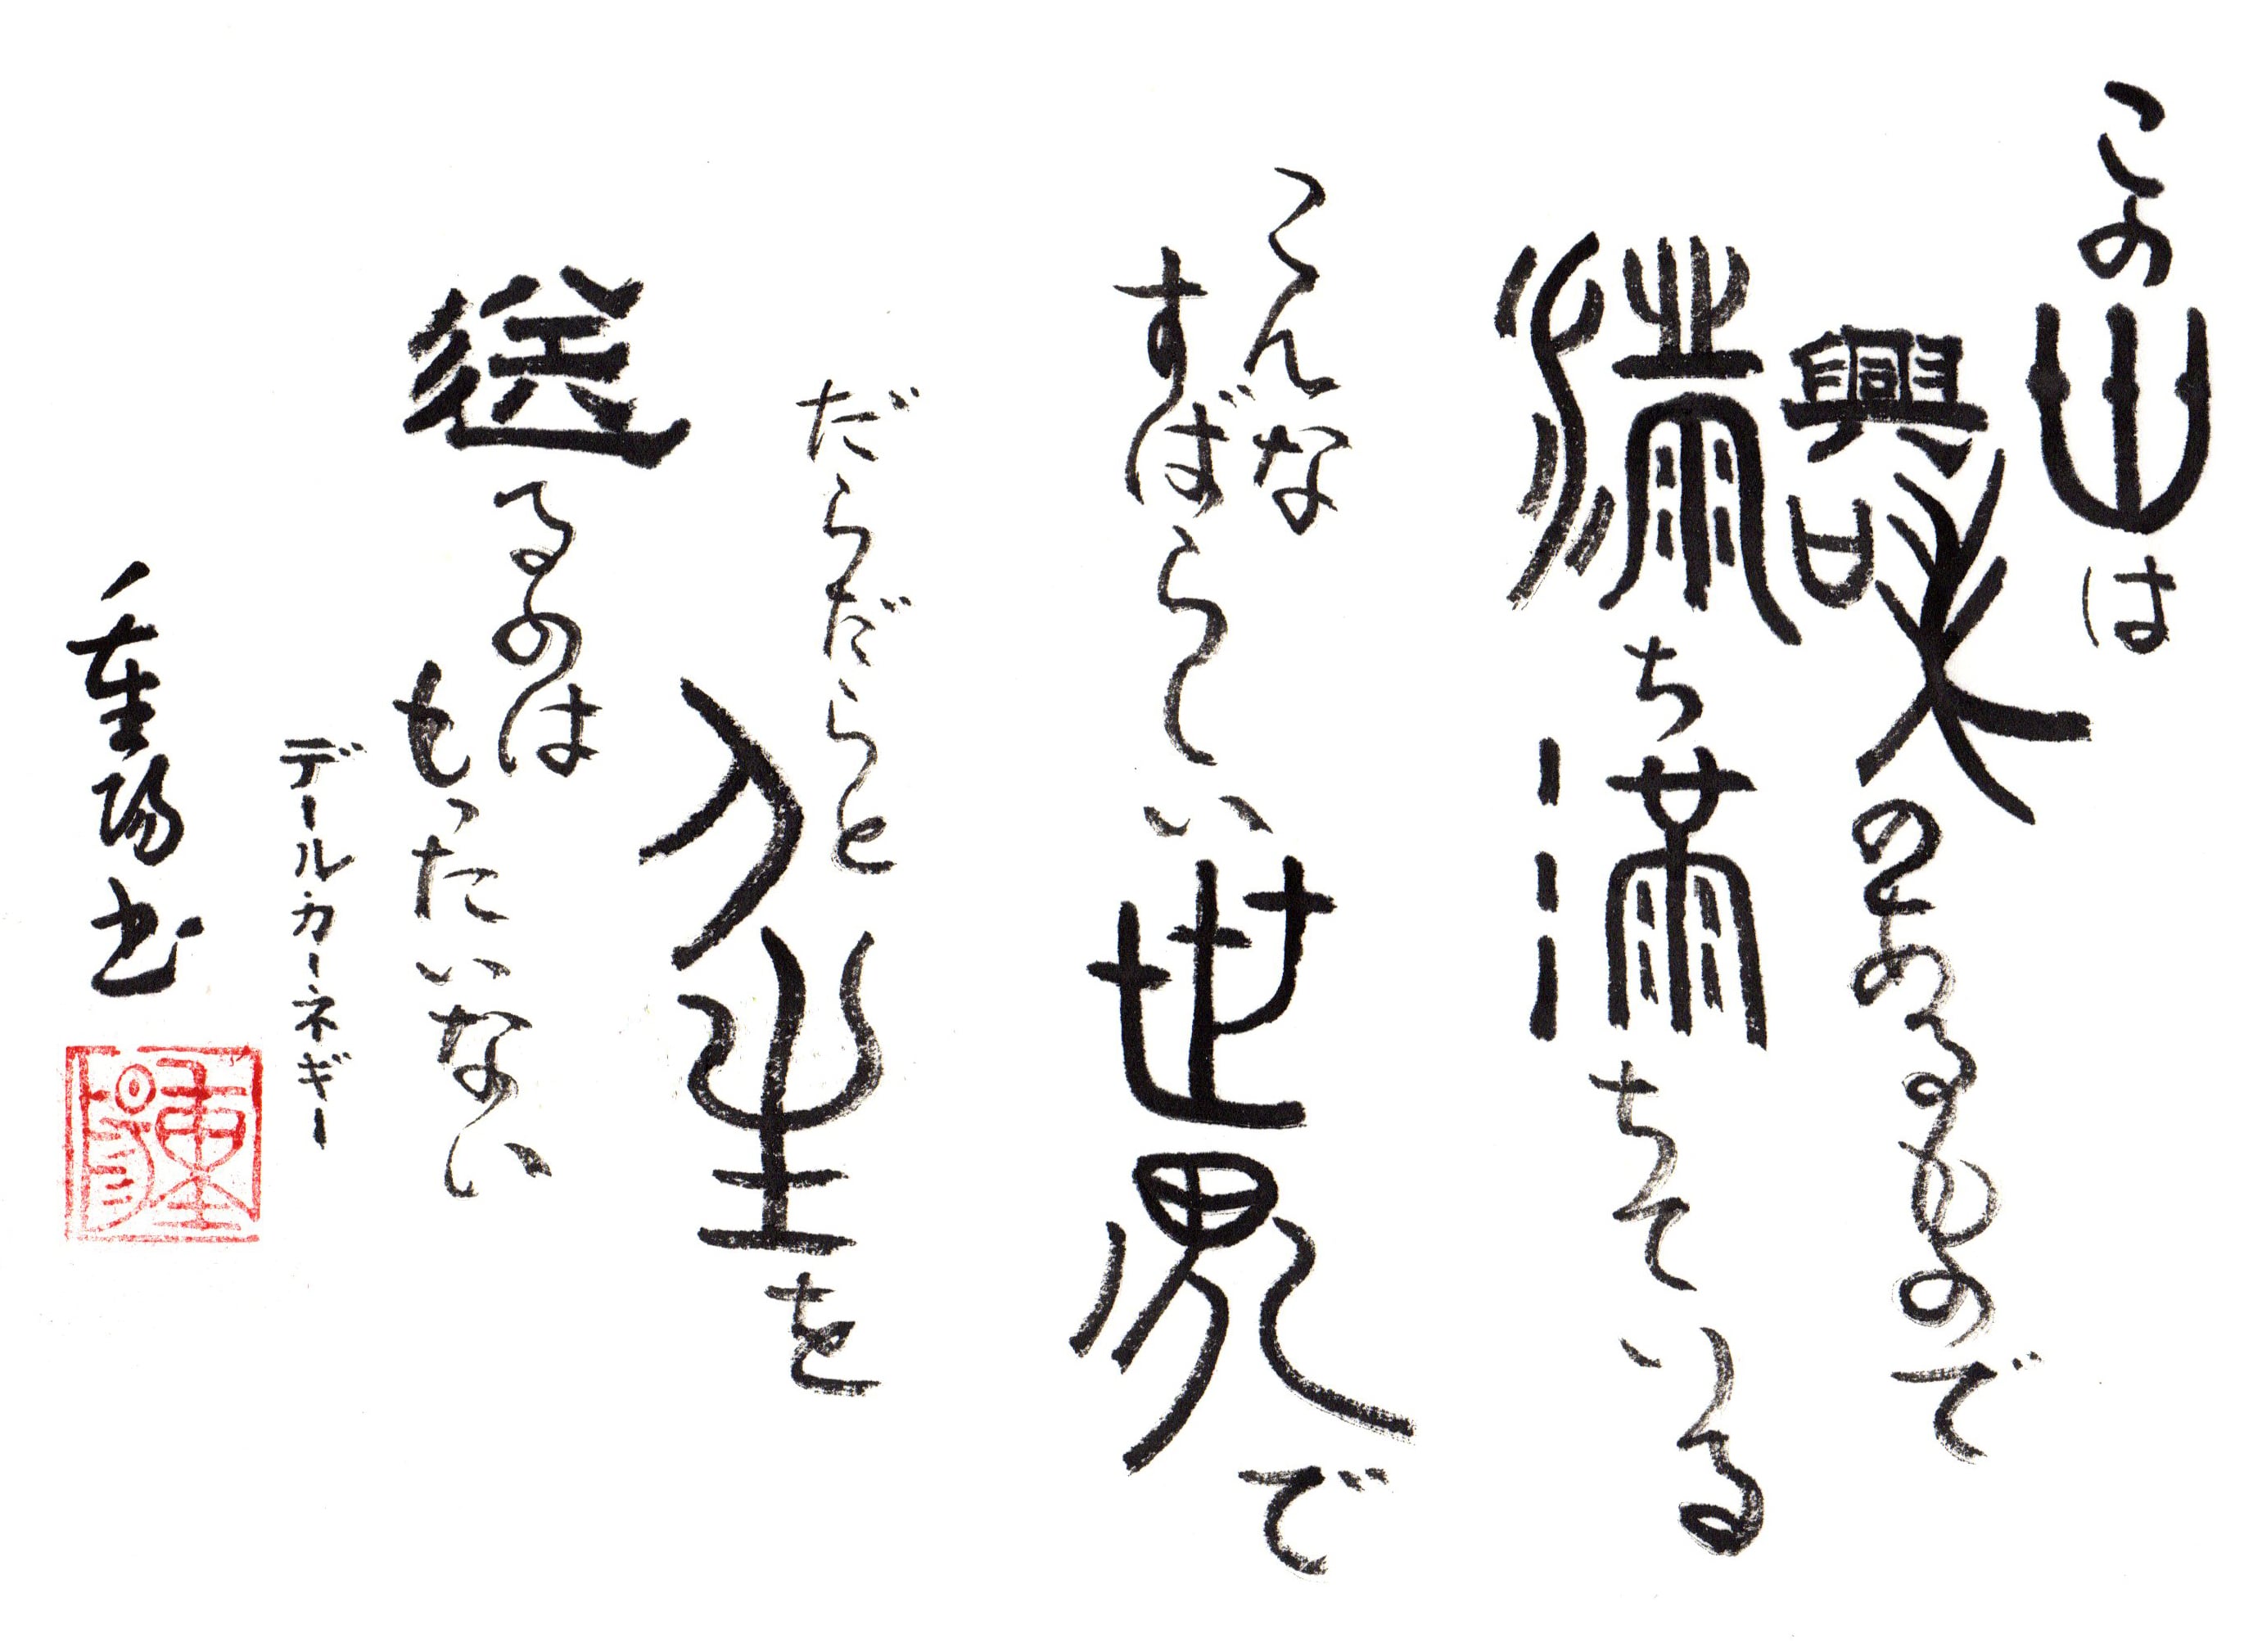 この世は
興味のあるもので
満ち満ちている
こんな
すばらしい世界で
だらだらと
人生を
送るのは
もったいない
デールカーネギー
重陽書
重陽